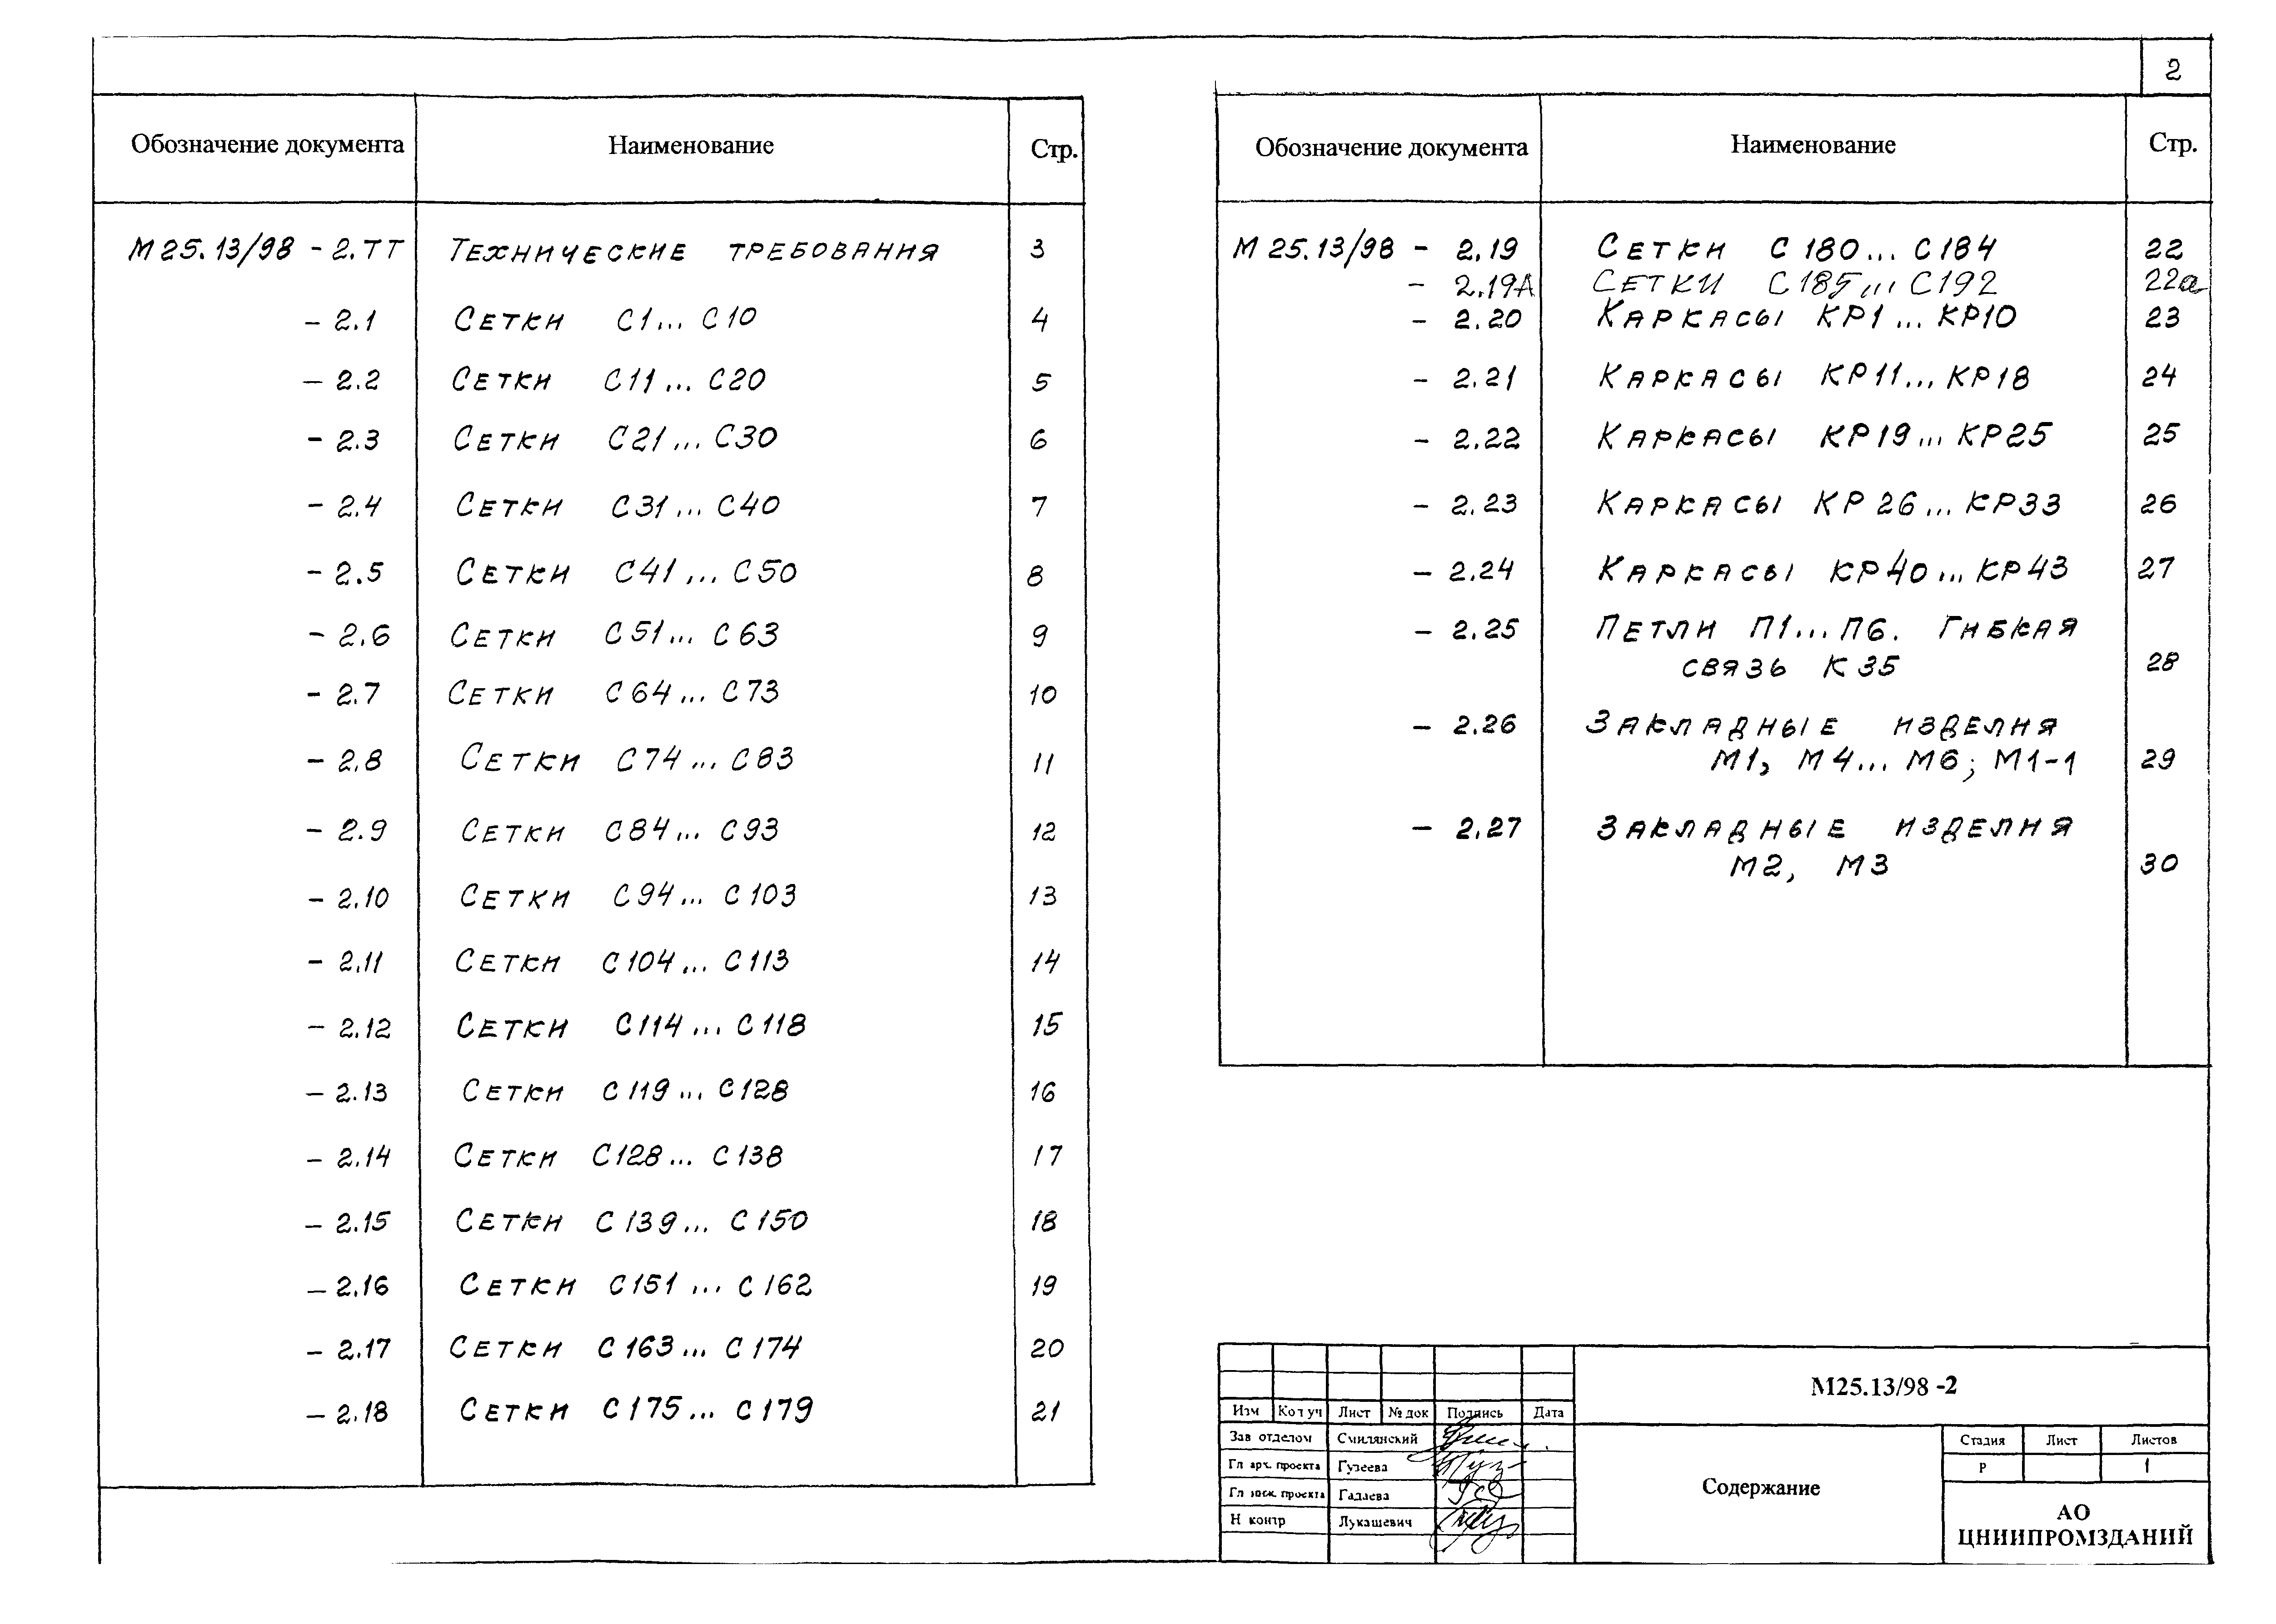 2
Обозначение документа Наименование Стр.
М 25.13/98 - 2.ТТ Технические требования 3
- 2.1 Сетки С1... С10 4
- 2.2 Сетки С11... С20 5
- 2.3 Сетки С21... С30 6
- 2.4 Сетки С31... С40 7
- 2.5 Сетки С41... С50 8
- 2.6 Сетки С51... С63 9
- 2.7 Сетки С64... С73 10
- 2.8 Сетки С74... С83 11
- 2.9 Сетки С84... С93 12
- 2.10 Сетки С94... С103 13
- 2.11 Сетки С104... С113 14
- 2.12 Сетки С114... С118 15
- 2.13 Сетки С119... С128 16
- 2.14 Сетки С128... С138 17
- 2.15 Сетки С139... С150 18
- 2.16 Сетки С151... С162 19
- 2.17 Сетки С163... С174 20
- 2.18 Сетки С175... С179 21
Обозначение документа Наименование Стр.
М 25.13/98 - 2.19 Сетки С180... С184 22
- 2.19А Сетки С185... С192 22а
- 2.20 Каркасы КР1... КР10 23
- 2.21 Каркасы КР11... КР18 24
- 2.22 Каркасы КР19... КР25 25
- 2.23 Каркасы КР26... КР33 26
- 2.24 Каркасы КР40... КР43 27
- 2.25 Петли П1... П6. Гибкая
связь К35 28
- 2.26 Закладные изделия
М1, М4... М6; М1-1 29
- 2.27 Закладные изделия
М2, М3 30
М25.13/98 -2
Изм Кол уч Лист № док Подпись Дата
Зав отделом Смилянский
Гл арх. проекта Гузеева
Гл инж. проекта Гадаева
Н контр Лукашевич
Содержание
Стадия Лист Листов
Р 1
АО
ЦНИИПРОМЗДАНИЙ